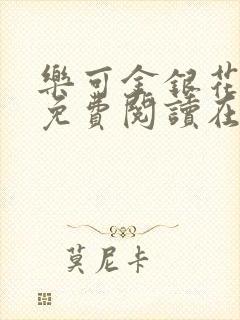 樂可金銀花
免費閱讀在
莫尼卡